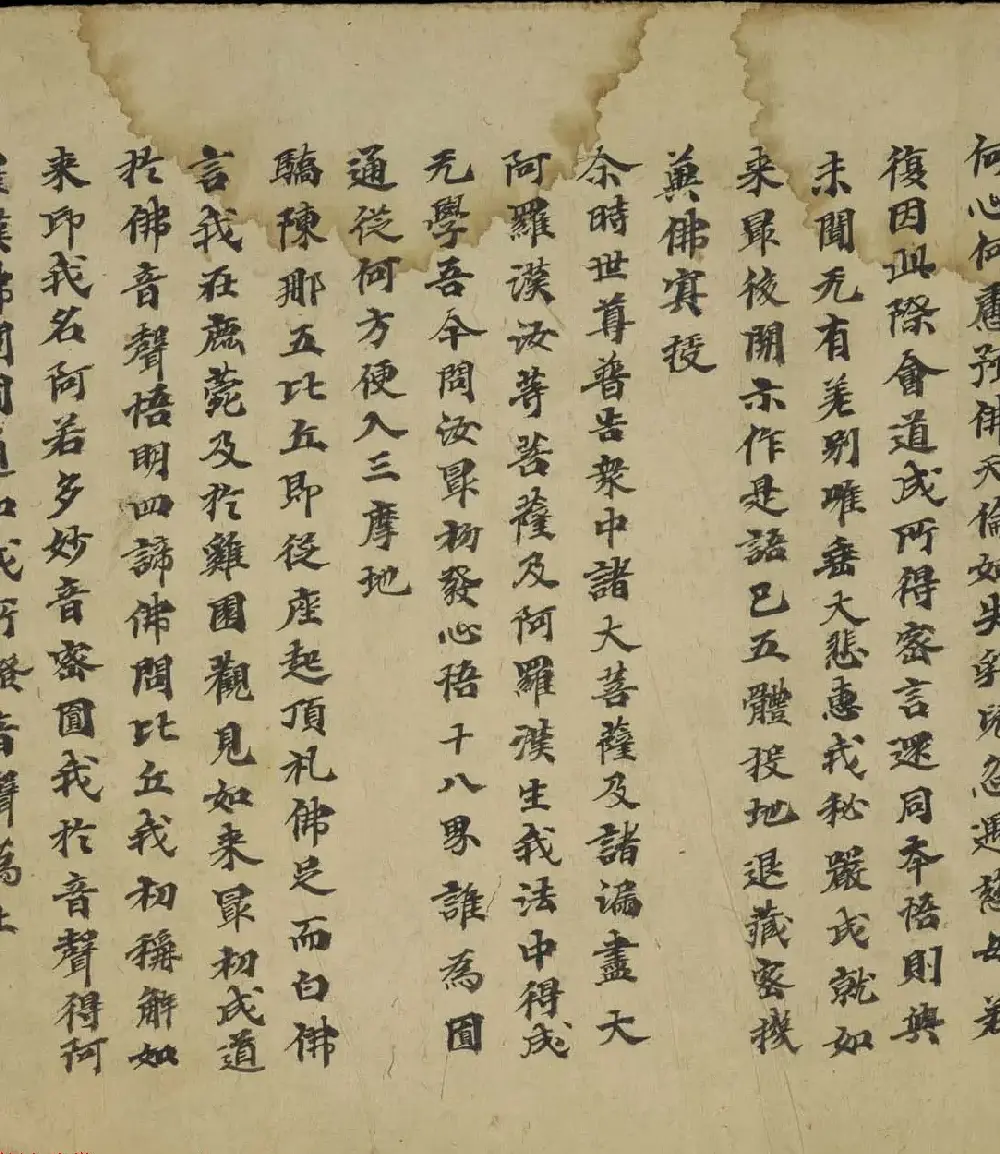 何心何慮預佛天倫如失乳兒忽遇慈母若
復因此際會道成所得密言還同本悟則與
未聞无有差别唯垂大悲惠我秘嚴成就如
来最後開示作是語已五體投地退藏密機
兾佛冥授
尒時世尊普告衆中諸大菩薩及諸漏盡大
阿羅漢汝等菩薩及阿羅漢生我法中得成
无學吾今問汝最初發心悟十八界誰為圓
通從何方便入三摩地
驕陳那五比丘即從座起頂礼佛足而白佛
言我在鹿菀及於雞園觀見如来最初成道
於佛音聲悟明四諦佛問比丘我初稱解如
来印我名阿若多妙音密圓我於音聲得阿
羅漢佛問圓通如我所證音聲為上